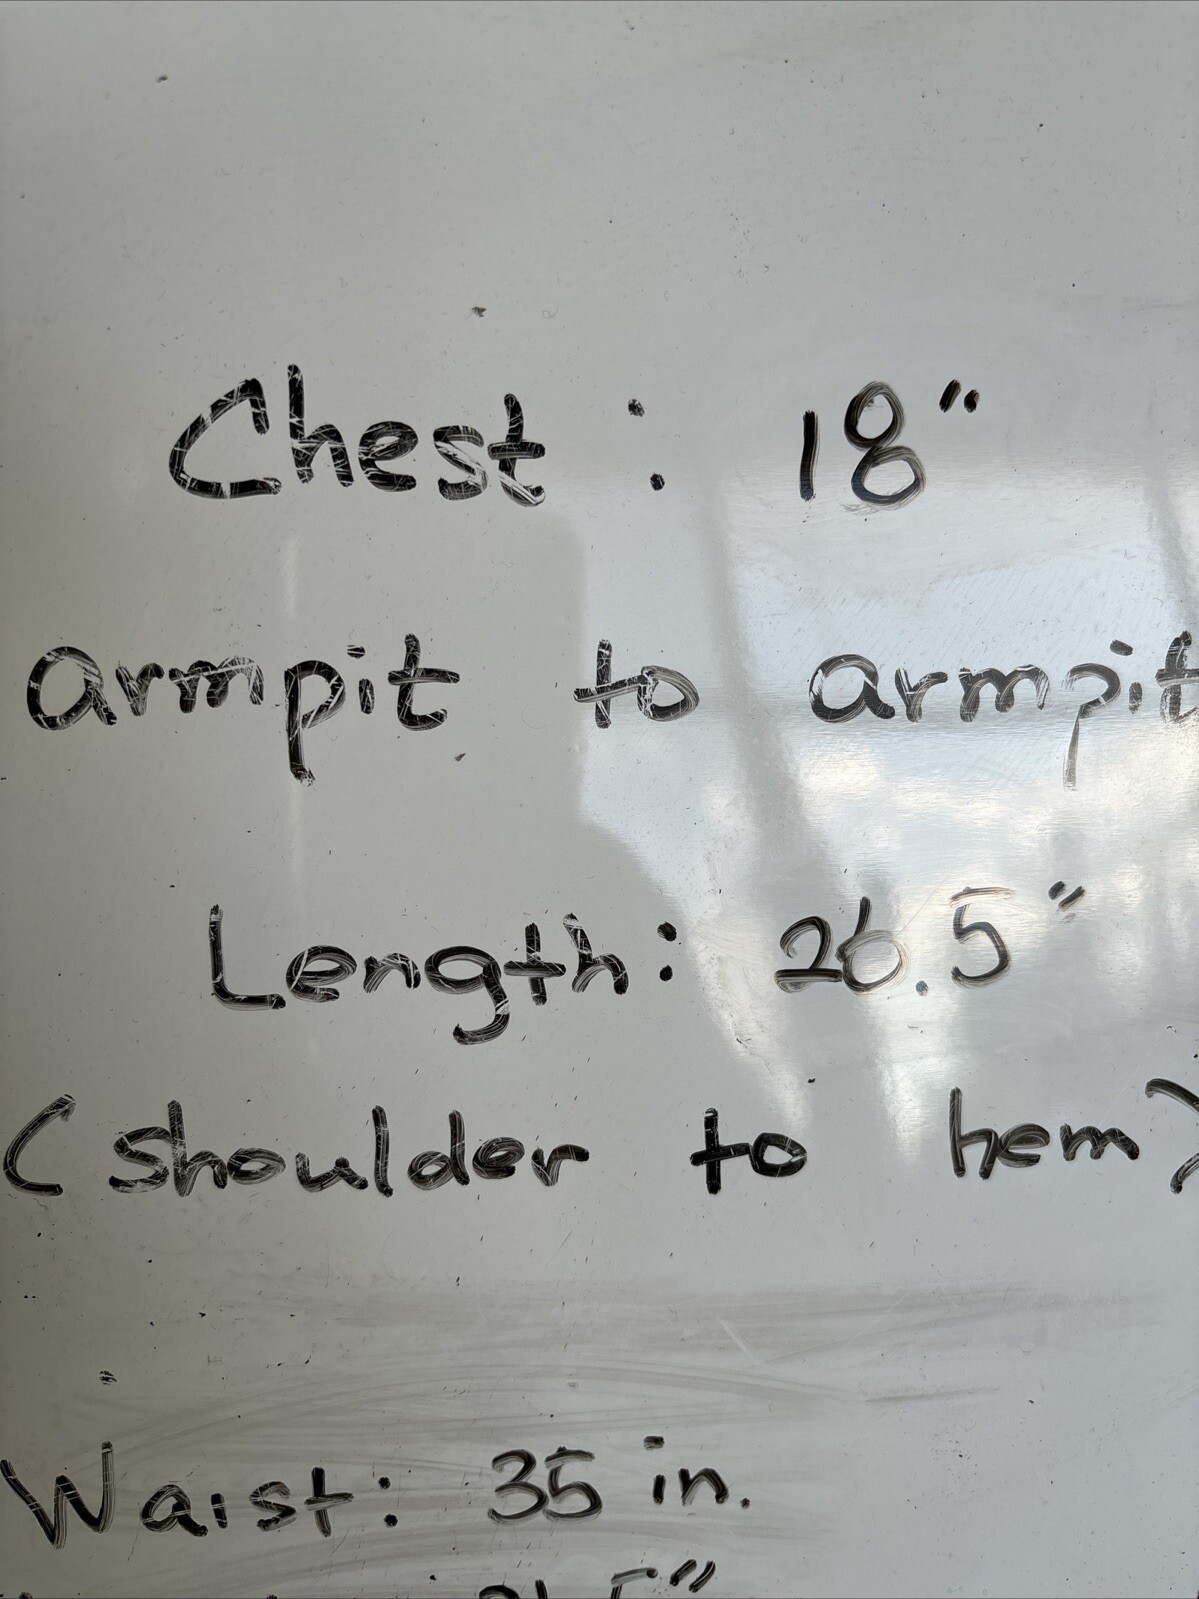 Chest : 18"
armpit to armpit
Length: 26.5"
(shoulder to hem)
Waist: 35 in.